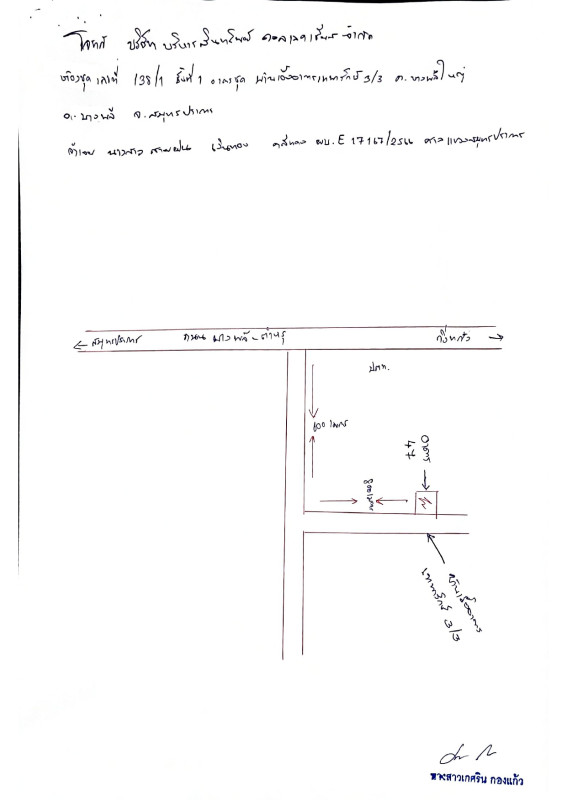 โจทก์ บริษัท บริหารสินทรัพย์ คอลเลคเชียน จำกัด
ห้องชุด เลขที่ 138/1 ชั้นที่ 1 อาคารชุด บ้านเอื้ออาทรเทพารักษ์ 3/3 ต.บางพลีใหญ่
อ.บางพลี จ.สมุทรปราการ
จำเลย นางสาว สายฝน เงินทอง คดีแดง ผบ.E 17167/2566 ศาลแขวงสมุทรปราการ
สมุทรปราการ ถนน บางพลี-ตำหรุ กิ่งแก้ว
ปตท.
600 เมตร
อาคาร 47
บ้านเอื้ออาทร
เทพารักษ์ 3/3
นางสาวเกศริน กองแก้ว